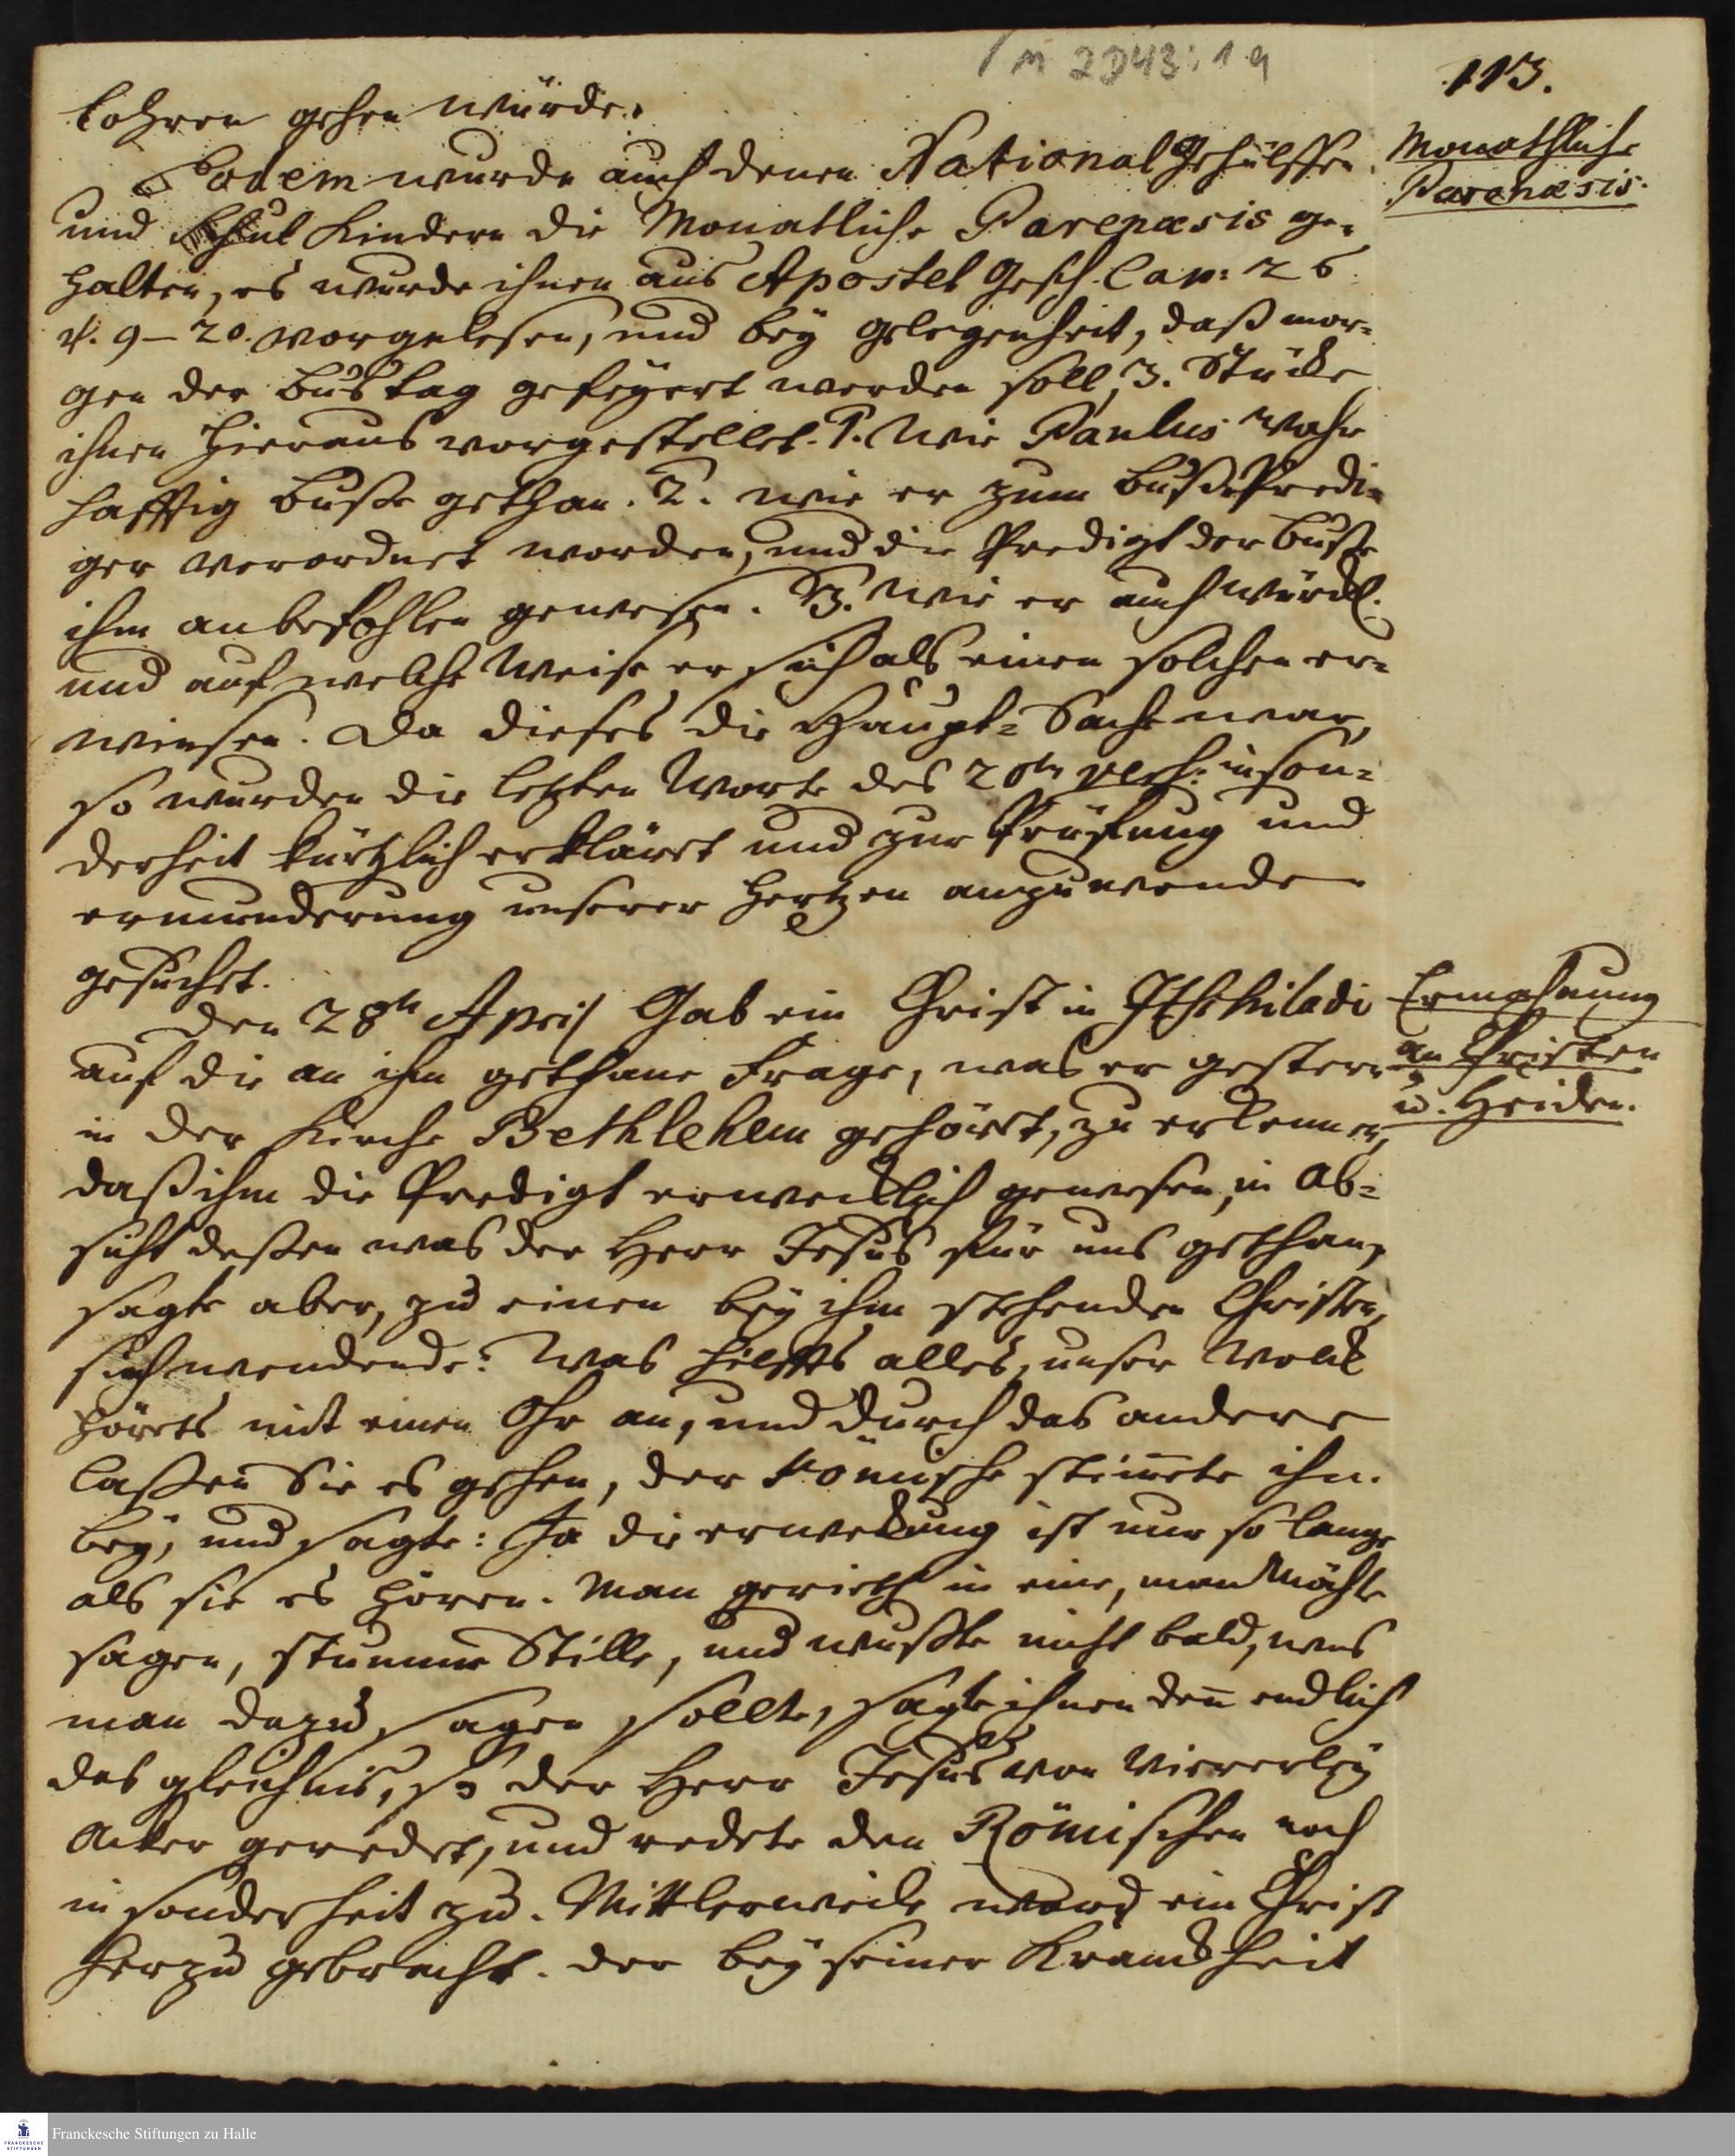 / M 2 D 43 : 19
113.
lohren gehen würde.
Eodem wurde auch denen National Gehülffen
Monathliche
Parenæsis.
und Schul Kindern die Monatliche Parenæsis ge-
halten, es wurde ihnen aus Apostel Gesch. Cap: 26
v. 9–20. vorgelesen, und bey gelegenheit, daß mor-
gen der Bustag gefeyert werden soll, 3. Stücke
ihnen hieraus vorgestellet. 1. Wie Paulus wahr
hafftig Busse gethan. 2. wie er zum Buß Predi-
ger verordnet worden, und die Predigt der Busse
ihm anbefohlen gewesen. 3. Wie er auch würckl.
und auf welche Weise er sich als einen solchen er-
wiesen. Da dieses die Haupt-Sache war,
so wurden die letzten Worte des 20ten vers: inson-
derheit kürtzlich erkläret und zur Prüfung und
ermunderung unserer Hertzen anzuwenden
gesuchet.
Den 28ten April Gab ein Christ in Itschiladi
Ermahnung
an Christen
u. Heiden.
auf die an ihm gethane Frage, was er gestern
in der Kirche Bethlehem gehöret, zu erkennen,
daß ihm die Predigt erwecklich gewesen, in Ab-
sicht deßen was der Herr Jesus für uns gethan,
sagte aber, zu einen bey ihm stehenden Christen,
sich wendende: Was hilffts alles, unser Volck
hörets mit einen Ohr an, und durch das andere
laßen Sie es gehen, der Römische stimete ihm
bey, und sagte: Ja die erweckung ist nur so lange
als sie es hören. Man gerieth in eine, man Möchte
sagen, stumme Stille, und wusste nicht bald, was
man dazu sagen sollte, sagte ihnen den endlich
das gleichnis, so der Herr Jesus von Viererley
Acker geredet, und redete den Römischen noch
insonderheit zu. Mittlerweile ward ein Christ
herzu gebracht. der bey seiner Kranckheit
Franckesche Stiftungen zu Halle